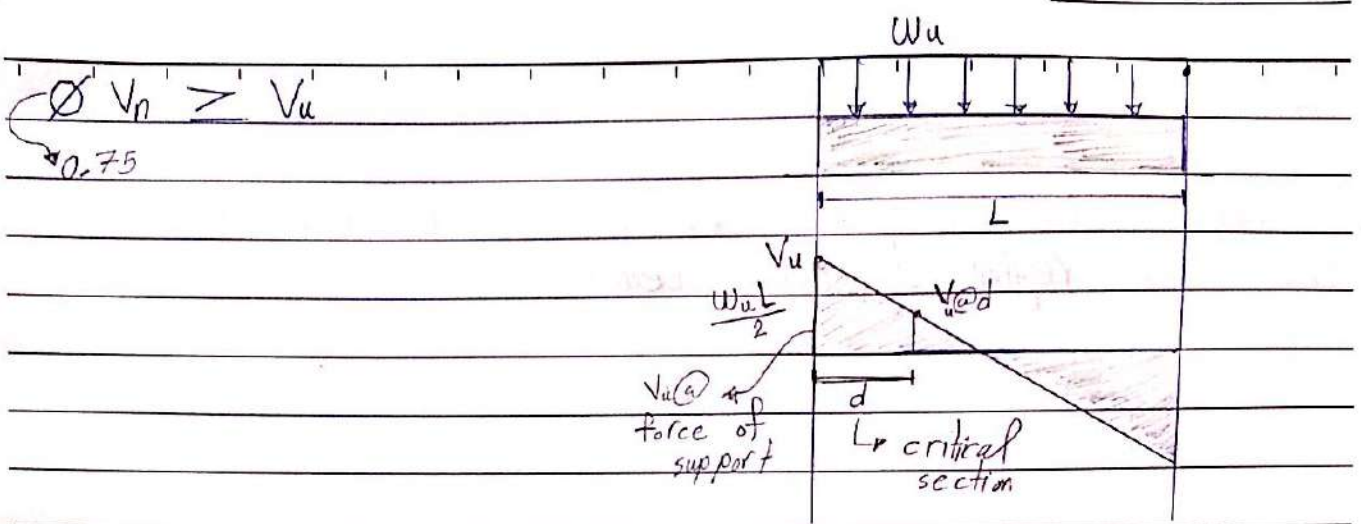 Wu
Ø Vn ≥ Vu
0.75
L
Vu
WuL/2
Vu@d
Vu@
force of
support
d
critical
section